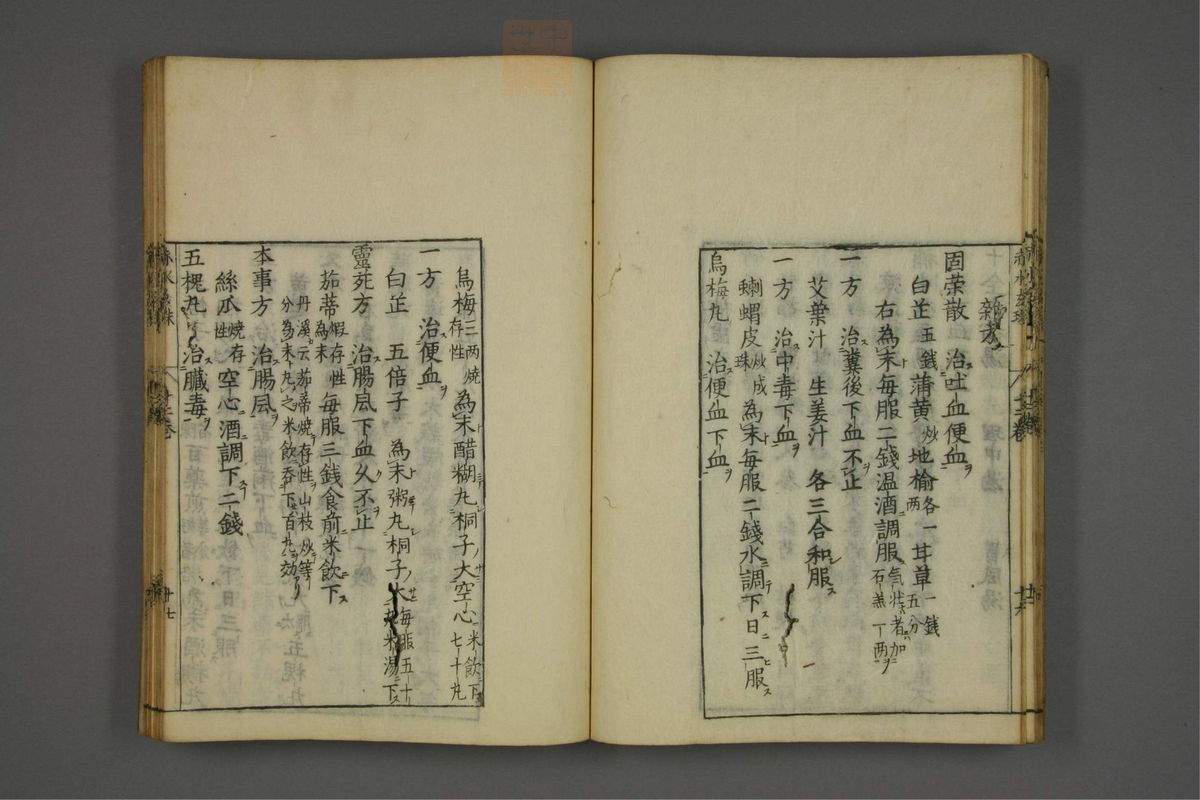 雜方
固荣散 治吐血便血
白芷五錢蒲黄炒地榆各一两甘草一錢五分
右為末每服二錢温酒調服気壮者加石羔一两
一方 治糞後下血不止
艾葉汁 生姜汁 各三合和服
一方 治中毒下血
蝲蝟皮炒成珠為末每服二錢水調下日三服
烏梅丸 治便血下血
烏梅三两燒存性為末醋糊丸桐子大空心米飲下七十丸
一方 治便血
白芷 五倍子 為末粥丸桐子大每服五十丸米湯下
靈茈方 治腸風下血久不止
茄蒂煆存性為末每服三錢食前米飲下
丹溪云茄蒂燒存性山枝炒等分為末丸之米飲吞下百丸効
本事方 治腸風
絲瓜燒存性空心酒調下二錢
五槐丸 治臟毒